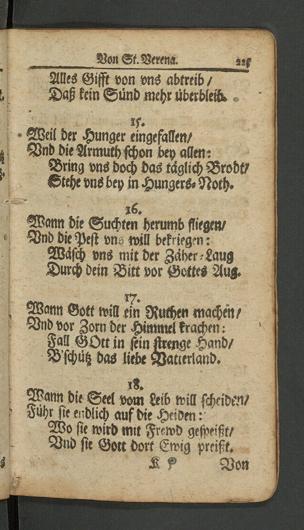 Von St. Verena. 225
Alles Gifft von vns abtreib/
Daß kein Sünd mehr überbleib.
15.
Weil der Hunger eingefallen/
Vnd die Armuth schon bey allen:
Bring vns doch das täglich Brodt/
Stehe vns bey in Hungers-Noth.
16.
Wann die Suchten herumb fliegen/
Vnd die Pest vns will bekriegen:
Wäsch vns mit der Zäher-Laug
Durch dein Bitt vor Gottes Aug.
17.
Wann Gott will ein Ruthen machen/
Vnd vor Zorn der Himmel krachen:
Fall GOtt in sein strenge Hand/
B'schütz das liebe Vatterland.
18.
Wann die Seel vom Leib will scheiden/
Führ sie endlich auf die Heiden:
Wo sie wird mit Frewd gespeißt/
Vnd sie Gott dort Ewig preißt.
K Von